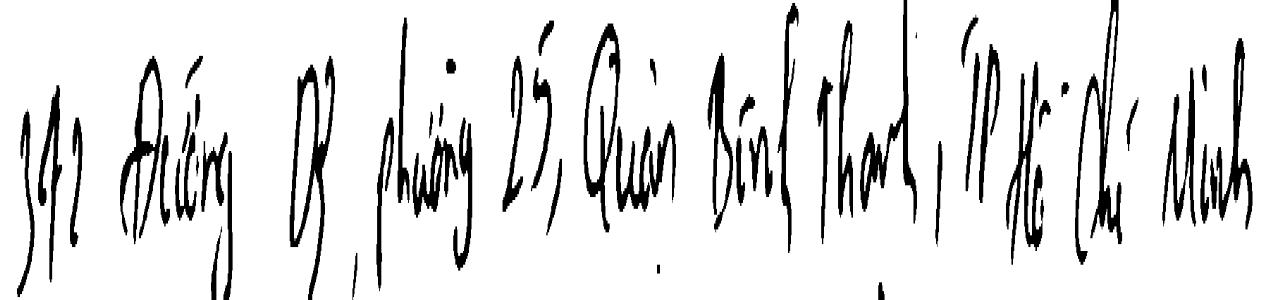 342 Đường D2, phường 25, Quận Bình Thạnh, TP Hồ Chí Minh